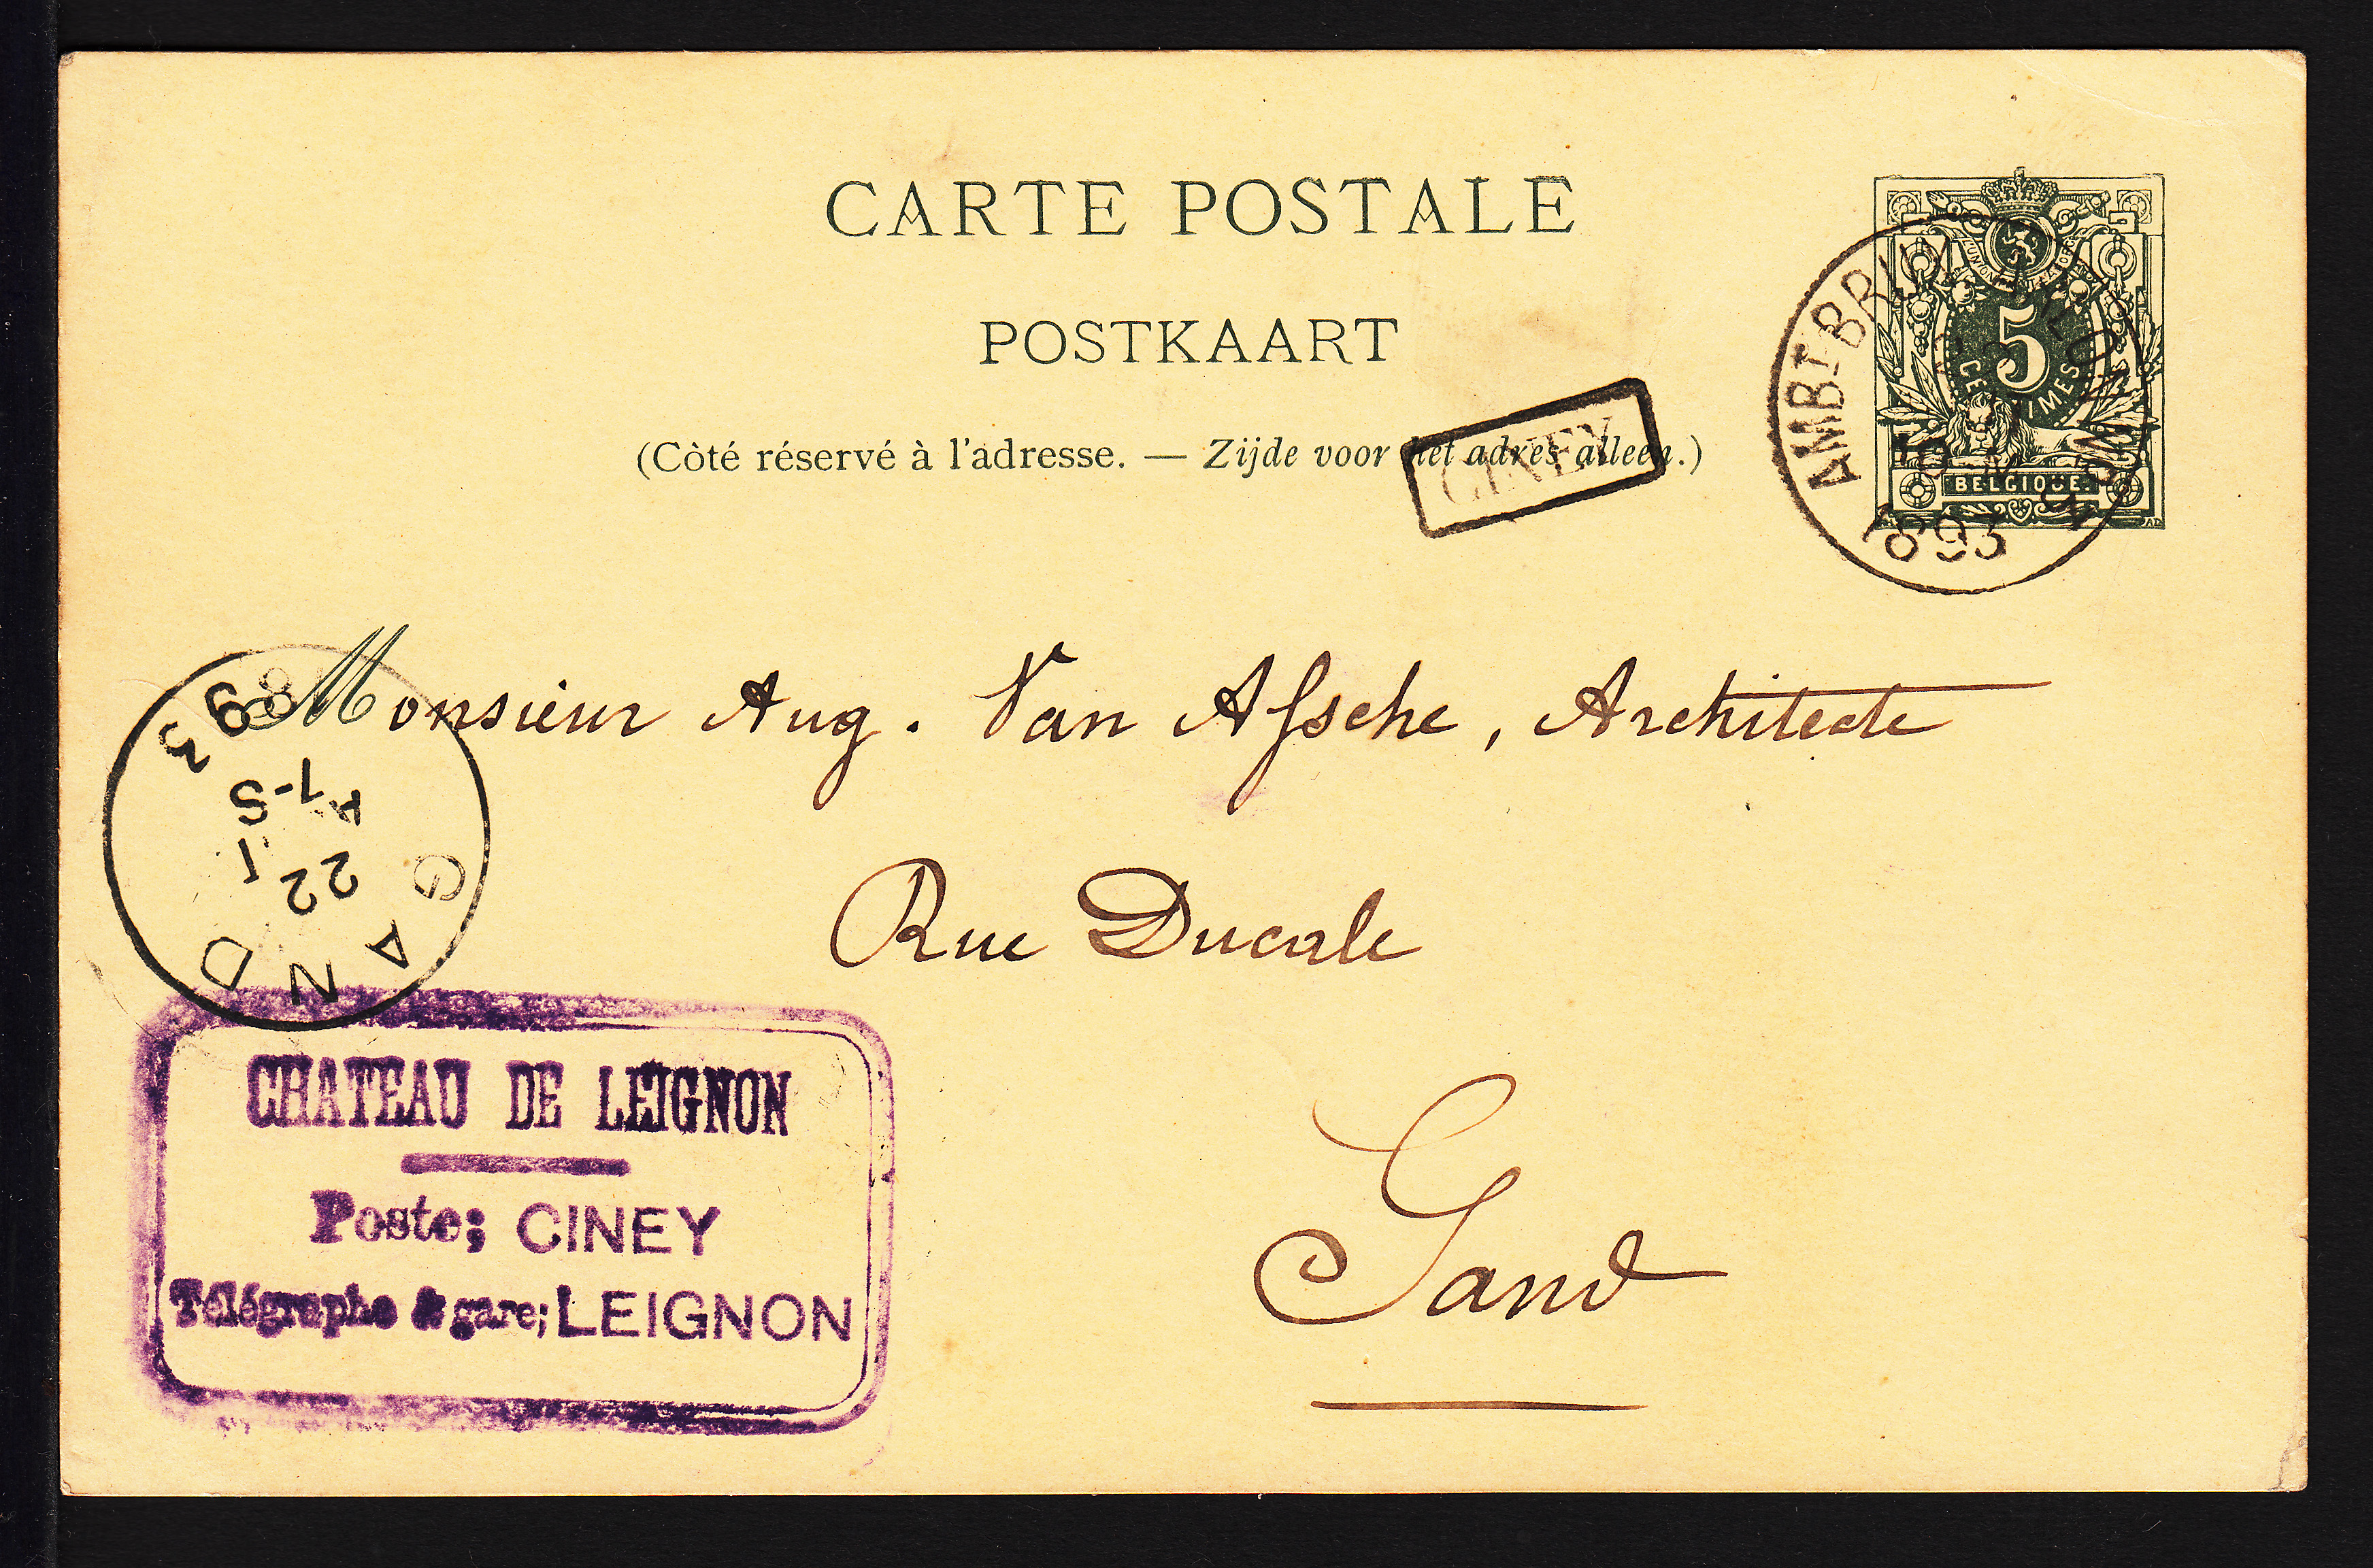 CARTE POSTALE
POSTKAART
(Côté réservé à l'adresse. — Zijde voor het adres alleen.)
CINEY
UNION
5
CENTIMES
BELGIQUE
AMBT BRUX
1893
Monsieur Aug. Van Assche, Architecte
Rue Ducale
Gand
GAND
22 1
7-S
93
CHATEAU DE LEIGNON
Poste; CINEY
Télégraphe & gare; LEIGNON